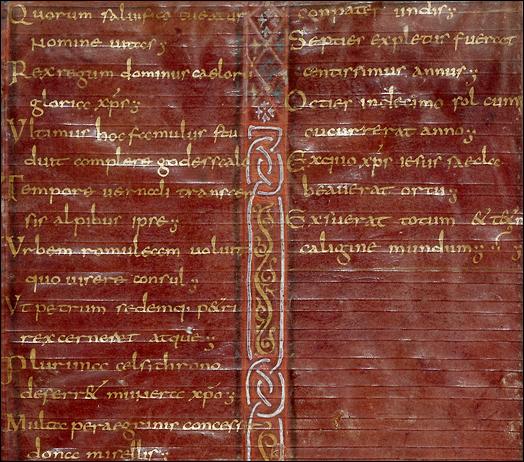 Quorum saluifico tueatur
nomine uitas;
Rex regum dominus caelor
gloria xp̄s;
Ultimus hoc famulus stu
duit complere godesscalc
Tempore uernali transcen
sis alpibus ipse;
Urbem romuleam uoluit
quo uisere consul;
Ut petrum sedemq; petri
rex cerneret atque;
Plurima celsithrono
deferr& munera xp̄o;
Multa peraegrinis concess
dona misellis;
con pater undis;
Septies expletus fuerat
centissimus annus;
Octies in decimo sol cum
cucurrerat anno;
Ex quo xp̄s iesus saecla
beauerat ortu;
Exsuerat totum & tetra
caligine mundum;